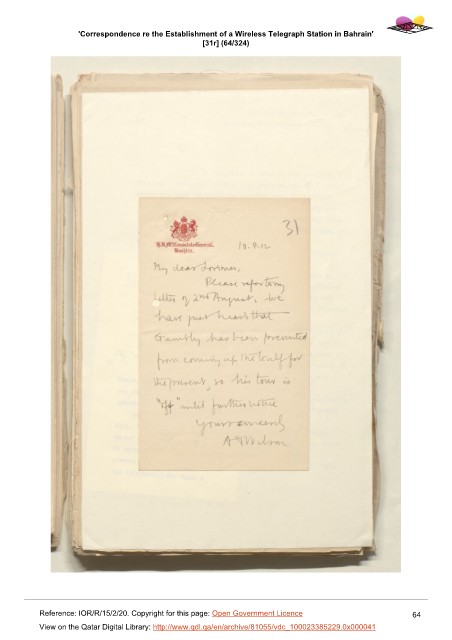 'Correspondence re the Establishment of a Wireless Telegraph Station in Bahrain'
[31r] (64/324)
31
H.B.M's Consulate-General,
Bushire.
10.8.12
My dear Lorimer,
Please refer to my
letter of 2nd August, we
have just heard that
has been prevented
from coming up the Gulf for
the present, so his tour is
"off" until further notice
Yours sincerely
A T Wilson
Reference: IOR/R/15/2/20. Copyright for this page: Open Government Licence
View on the Qatar Digital Library: http://www.qdl.qa/en/archive/81055/vdc_100023385229.0x000041
64